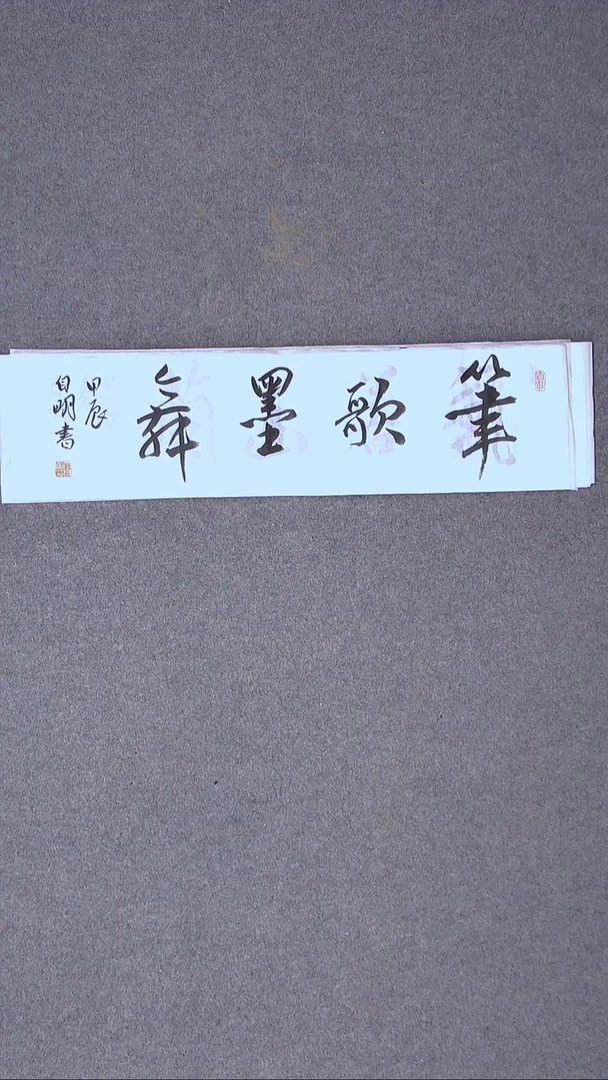 筆歌墨舞
甲辰
自明書